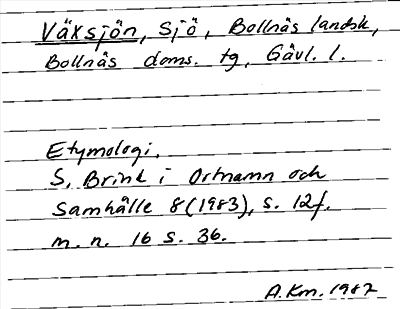 Växsjön, sjö, Bollnäs landsk,
Bollnäs doms. tg, Gävl. l.
Etymologi.
S. Brink i Ortnamn och
Samhälle 8 (1983), s. 12f.
m. n. 16 s. 36.
A.Km. 1987